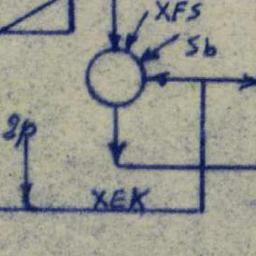 XFS
Sb
gp
XEK